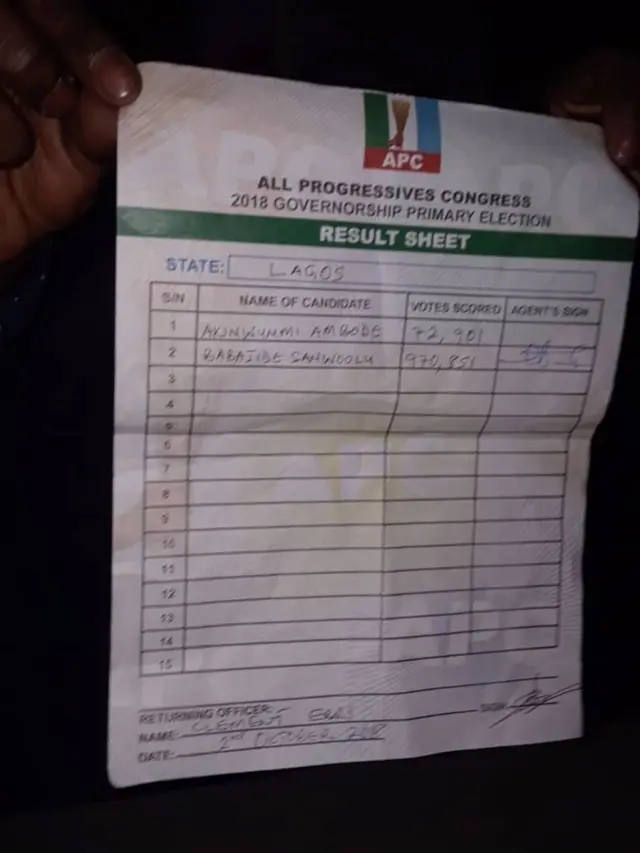 APC
ALL PROGRESSIVES CONGRESS
2018 GOVERNORSHIP PRIMARY ELECTION
RESULT SHEET
STATE: LAGOS
S/N NAME OF CANDIDATE VOTES SCORED AGENT'S SIGN
1 AKINWUNMI AMBODE 72,901
2 BABAJIDE SANWOOLU 970,851
3
4
5
6
7
8
9
10
11
12
13
14
15
RETURNING OFFICER:
NAME: CLEMENT SIGN
DATE: 2ND OCTOBER 2018